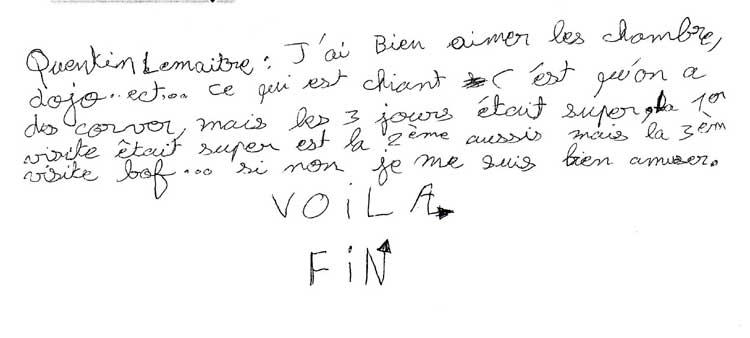 Quentin Lemaitre : J'ai Bien aimer les chambre,
dojo..ect... ce qui est chiant c'est qu'on a
des corver, mais les 3 jours était super, la 1er
visite était super est la 2ème aussis mais la 3èm
visite bof... si non je me suis bien amuser.
VOiLA
FiN